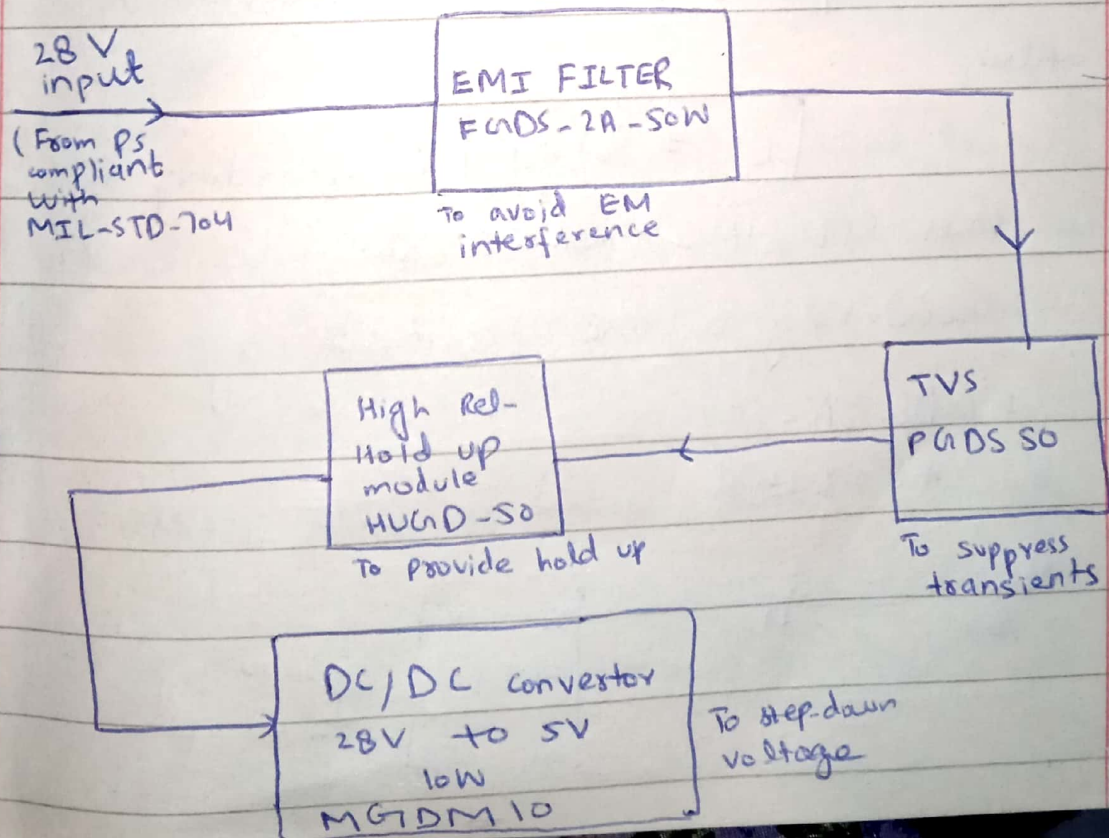 28 V
input
(From PS
compliant
with
MIL-STD-704
EMI FILTER
FGDS-2A-50W
To avoid EM
interference
TVS
PGDS 50
To suppress
transients
High Rel-
Hold up
module
HUGD-50
To provide hold up
DC/DC convertor
28V to 5V
10W
MGDM10
To step-down
voltage